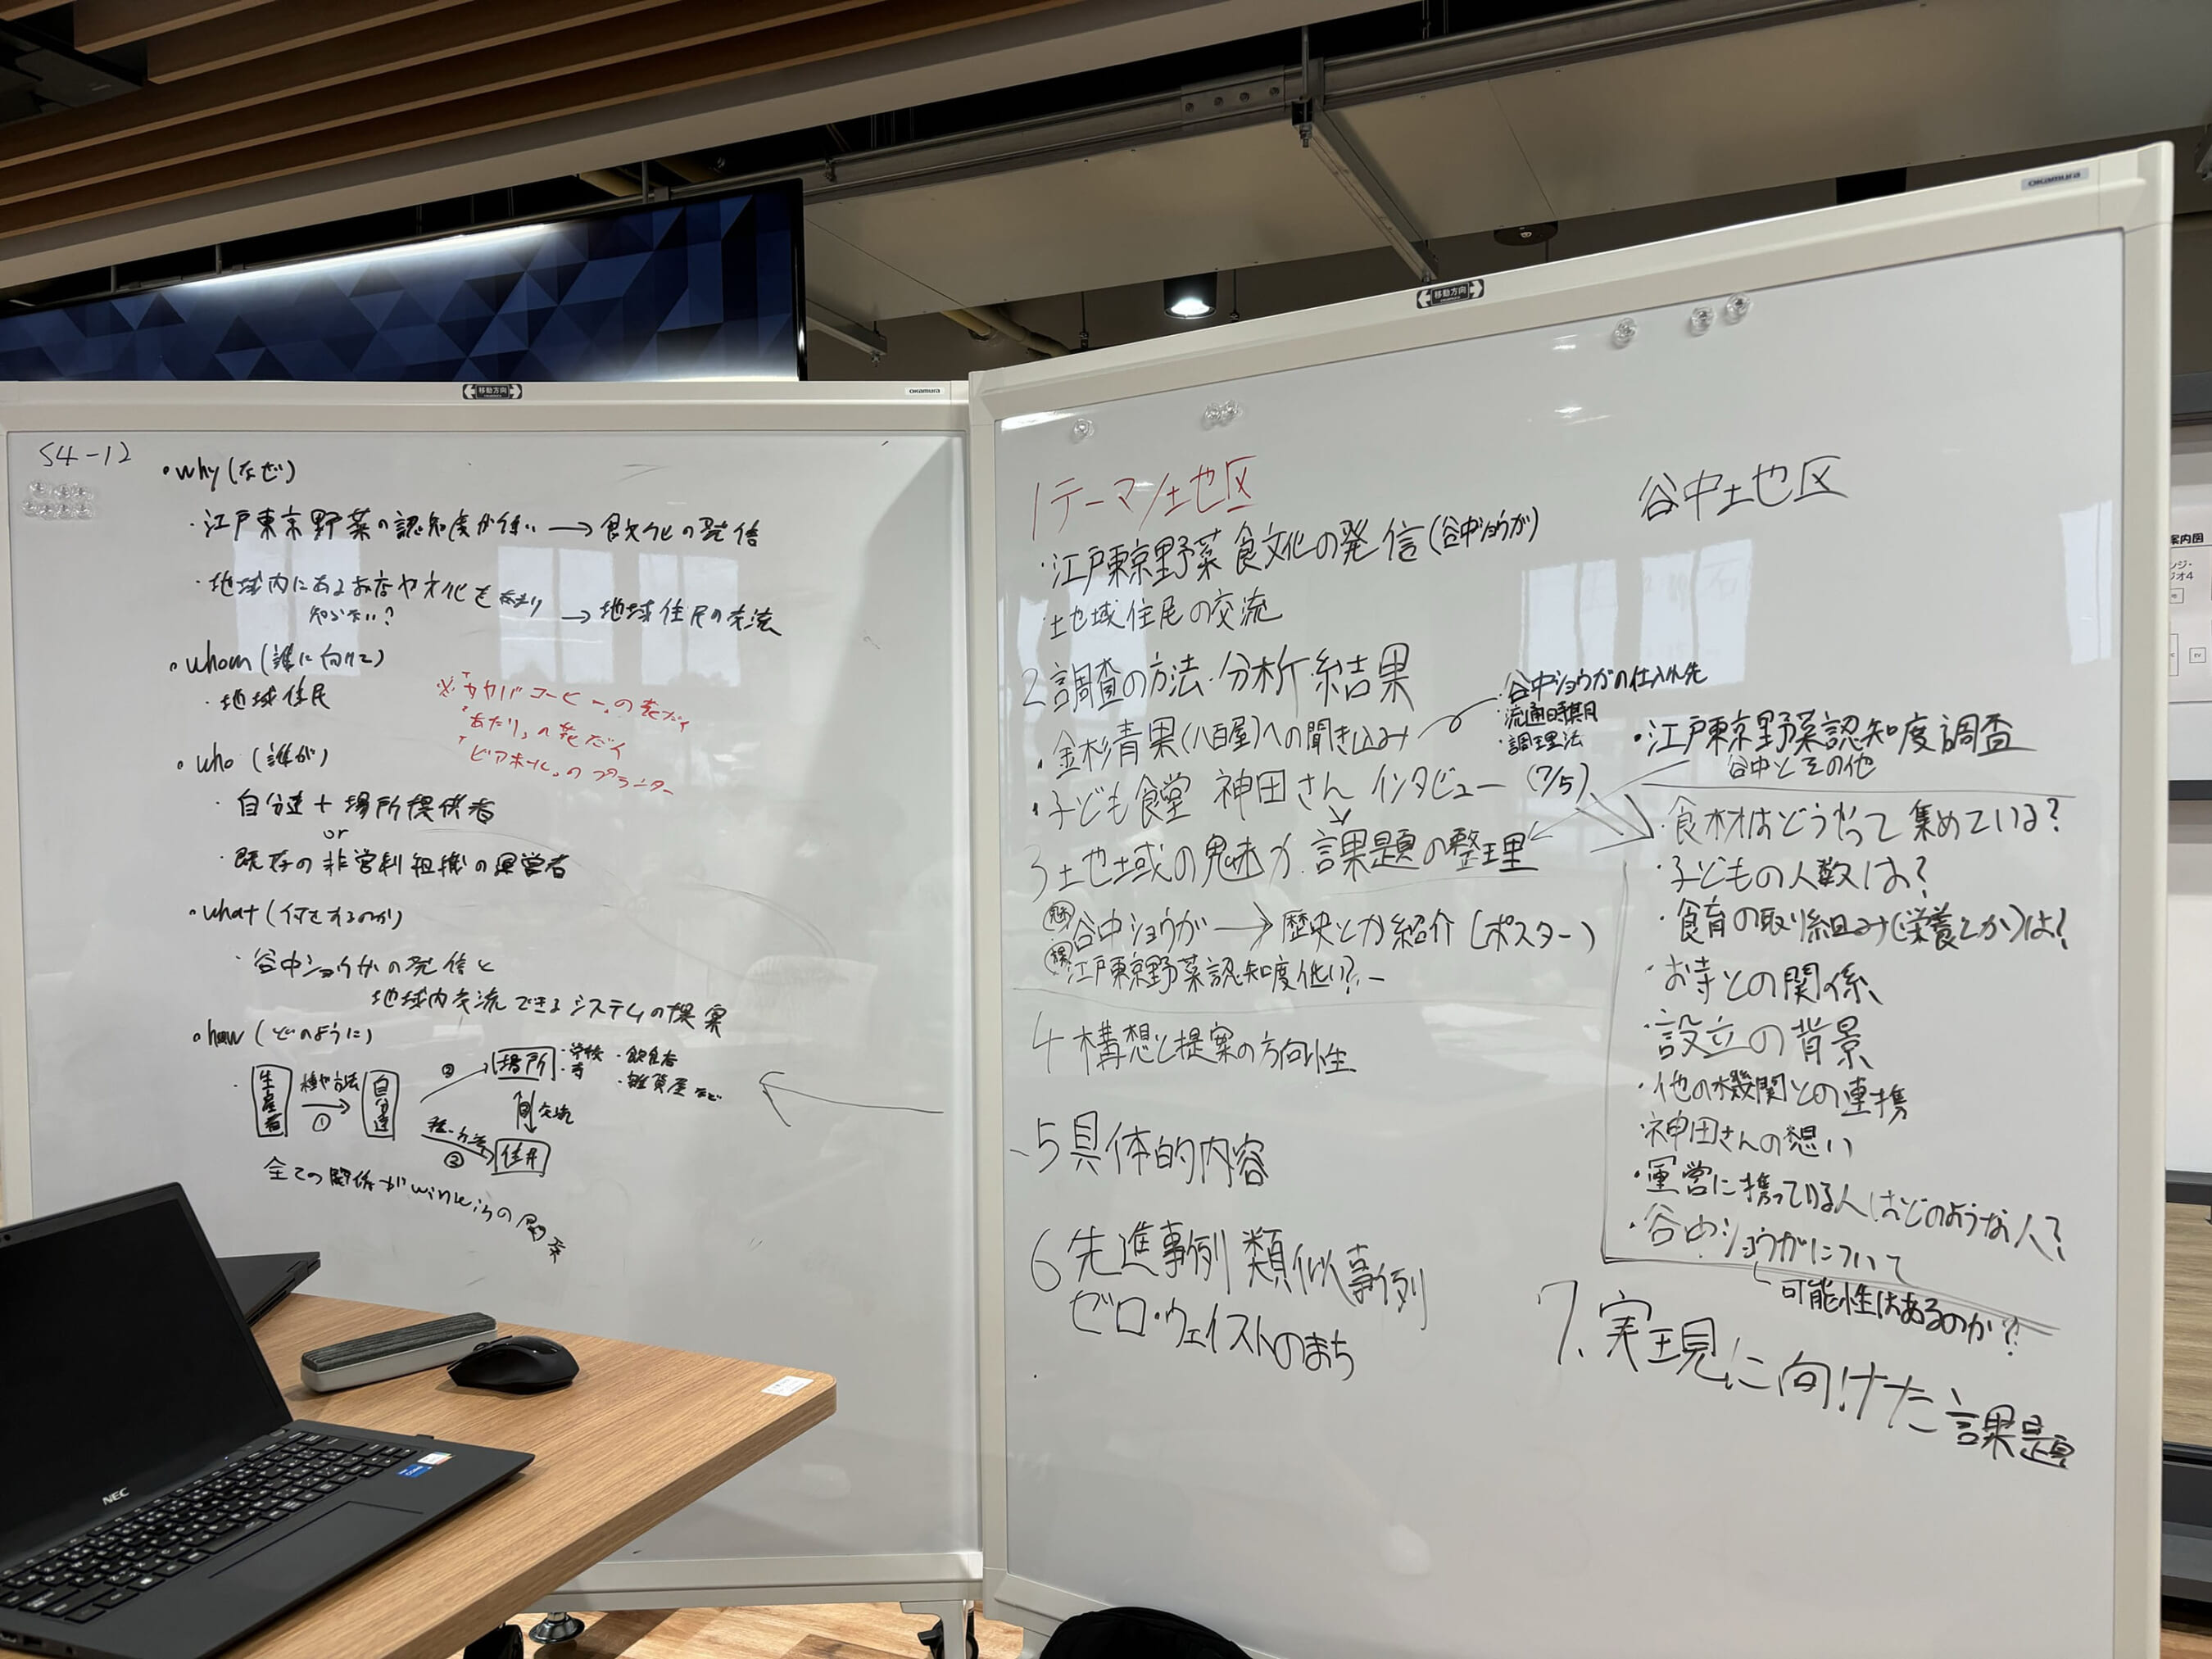 okamura
移動方向
S4-12
・why (なぜ)
・江戸東京野菜の認知度が低い → 食文化の発信
・地域内にあるお店や文化をあまり
知らない? → 地域住民の交流
・whom (誰に向けて)
・地域住民
※「カヤバコーヒー」の花だい
「あたり」の花だい
「ビアホール」のプランター
・who (誰が)
・自分達 + 場所提供者
or
・既存の非営利組織の運営者
・what (何をするのか)
・谷中ショウガの発信と
地域内交流できるシステムの提案
・how (どのように)
・生産者 種や方法 ① 自分達
② 場所 ・学校 ・寺 ・飲食店 ・雑貨屋など
交流
種・方法 ② 住民
全ての関係がwinwinの関係
NEC
okamura
移動方向
1テーマ/地区
・江戸東京野菜食文化の発信(谷中ショウガ)
・地域住民の交流
2調査の方法・分析・結果
・金杉青果(八百屋)への聞き込み
・谷中ショウガの仕入れ先
・流通時期
・調理法
・子ども食堂 神田さん インタビュー (7/5)
3土地域の魅力・課題の整理
魅 谷中ショウガ → 歴史とか紹介(ポスター)
課 江戸東京野菜認知度低い?
4構想と提案の方向性
5具体的内容
6先進事例 類似事例
ゼロ・ウェイストのまち
谷中地区
・江戸東京野菜認知度調査
谷中とその他
・食材はどうやって集めている?
・子どもの人数は?
・食育の取り組み(栄養とか)は?
・お寺との関係
・設立の背景
・他の機関との連携
・神田さんの想い
・運営に携っている人はどのような人?
・谷中ショウガについて
可能性はあるのか?
7.実現に向けた課題
案内図